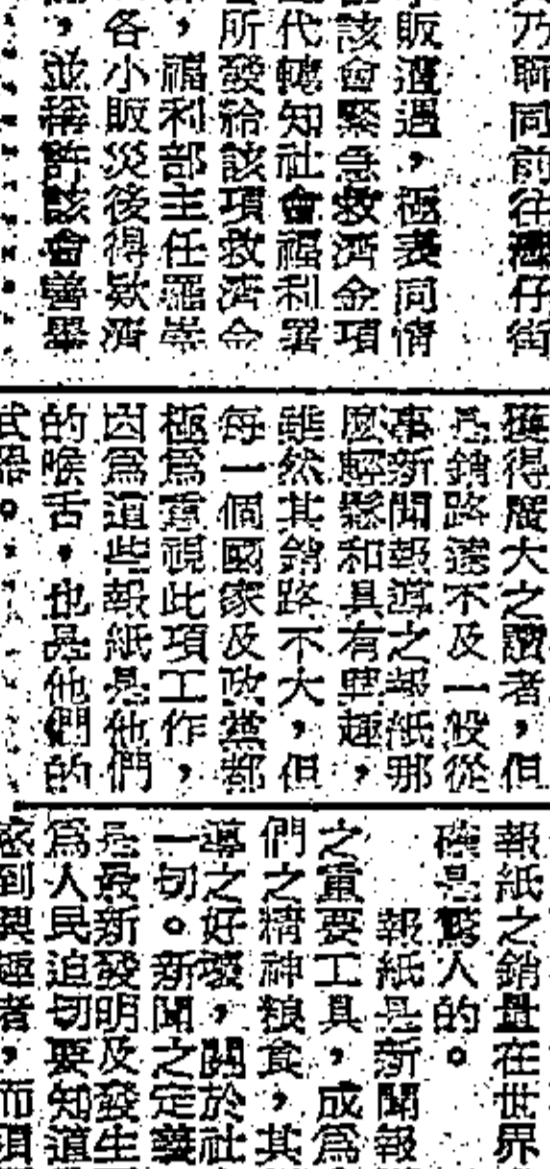 乃聯同前往
仔街
販遭遇，極表同情
該會緊急救濟金項
代轉知社會福利署
所發給該項救濟金
，福利部主任羅崇
各小販災後得欵濟
，並稱許該會善舉
獲得廣大之讀者，但
是銷路遠不及一般從
事新聞報導之報紙那
麼輕鬆和具有興趣，
雖然其銷路不大，但
每一個國家及政黨都
極爲重視此項工作，
因爲這些報紙是他們
的喉舌，也是他們的
武器。
報紙之銷量在世界
確是驚人的。
報紙是新聞報
之重要工具，成爲
們之精神粮食，其
導之好壞，關於社
一切。新聞之定義
是最新發明及發生
爲人民迫切要知道
感到興趣者，而須